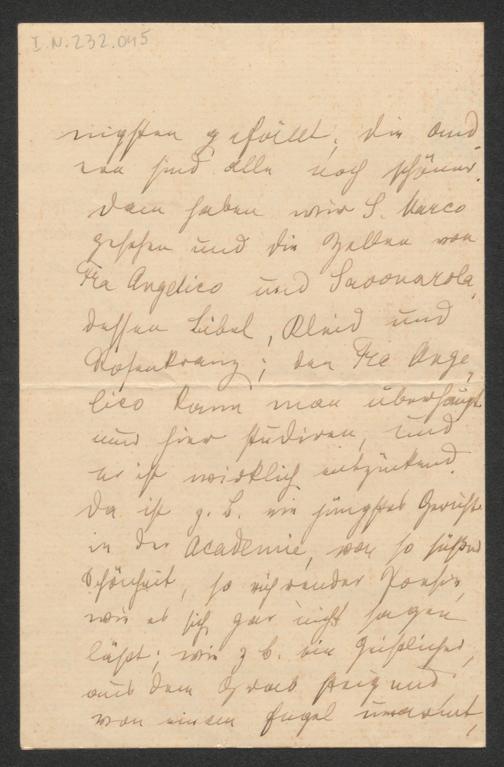 I.N. 232.045
nigsten gefällt; die and
ren sind alle noch schöner.
Dann haben wir S. Marco
gesehen und die Zellen von
Fra Angelico und Savonarola,
dessen Bibel, Kleid und
Rosenkranz; den Fra Ange-
lico kann man überhaupt
nur hier studiren, und
er ist wirklich entzückend.
Da ist z. B. ein jüngstes Gericht
in der Academie, von so süßer
Schönheit, so rührender Poesie,
wie es sich gar nicht sagen
läßt; wie z. B. ein Geistlicher,
aus dem Grab steigend
von einem Engel umarmt,